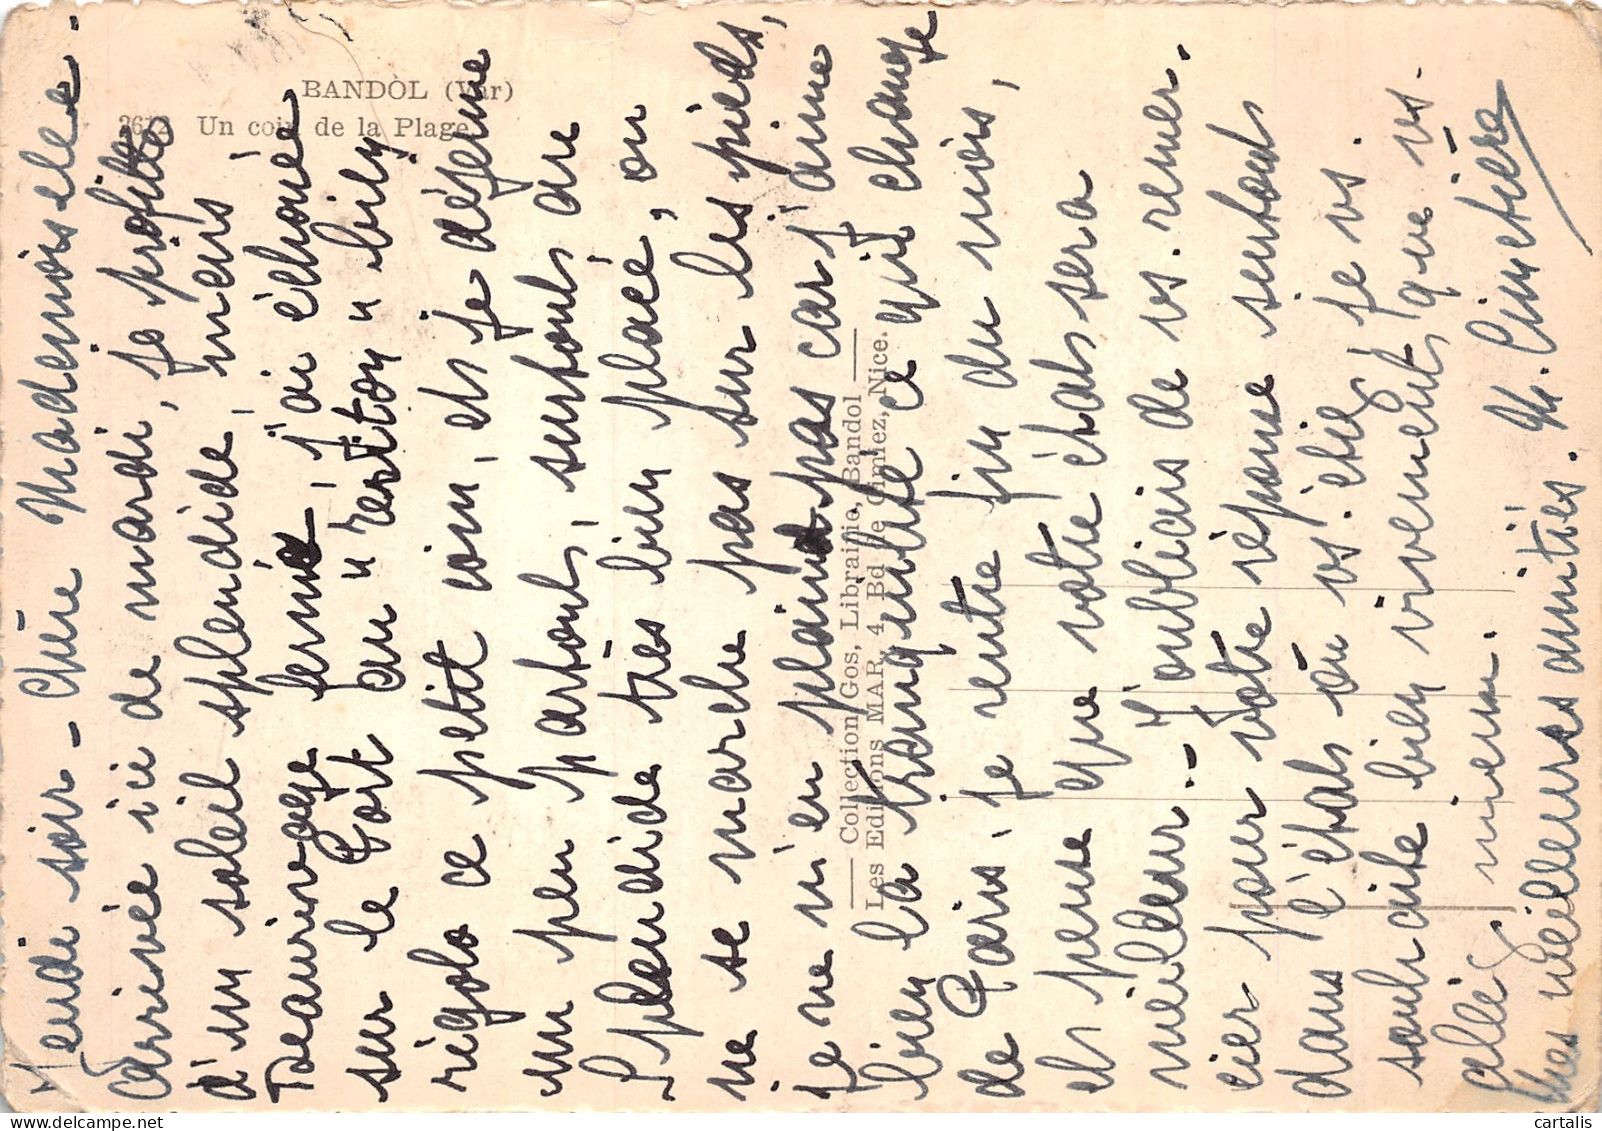 BANDOL (Var)
2612 Un coin de la Plage
Collection Gos, Librairie, Bandol
Les Editions MAR, 4 Bd de Cimiez, Nice.
Jeudi soir - Chère Mademoiselle -
Arrivée ici de mardi, je profite
d'un soleil splendide, mais
Beaurivage fermé, j'ai échoué
sur le Port au "Restton" bily
régolo ce petit coin, et je déjeune
un peu partout, surtout une
splendide très bien placé, on
ne se marche pas sur les pieds,
je ne m'en plaint pas car j'aime
bien la tranquilité ce qui change
de Paris, je rentre fin du mois,
et pense que votre état sera
meilleur. - J'oubliais de vs. remer-
cier pour votre réponse surtout
dans l'état où vs. étiez, je vs.
souhaite bien vivement que vs.
alliez mieux.
Mes meilleures amitiés. M. Cimetière
cartalis